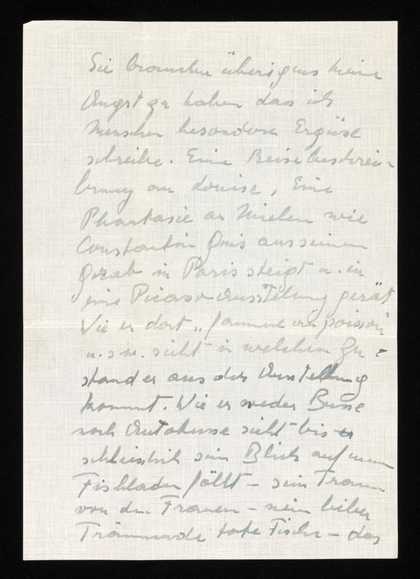 Sie brauchen übrigens keine
Angst zu haben das ich
Menschen besondere Ergüsse
schreibe. Eine Reisebeschrei-
bung an Louise, Eine
Phantasie an Mielen wie
Constantin Guis aus seinem
Grab in Paris steigt u. in
eine Picasso Ausstellung gerät
Wie er dort „femme au poisson
u.s.w. sieht in welchem Zu-
stand er aus der Ausstellung
kommt. Wie er weder Busse
noch Autobusse sieht bis er
schliesslich sein Blick auf einen
Fischladen fällt – sein Traum
von den Frauen – mein lieber
Träumende tote Fische – das